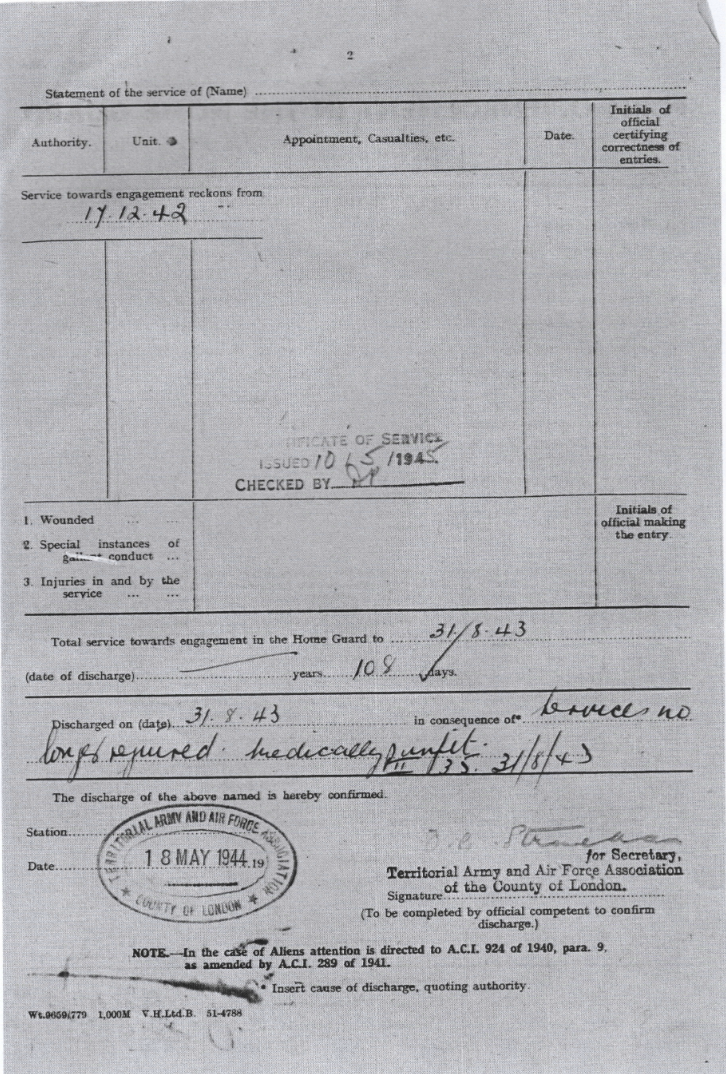 2
Statement of the service of (Name)
Authority. Unit. Appointment, Casualties, etc. Date. Initials of official certifying correctness of entries.
Service towards engagement reckons from
17.12.42
IFICATE OF SERVICE
ISSUED 10/5/1945
CHECKED BY
1. Wounded ... ...
Initials of official making the entry.
2. Special instances of
gallant conduct ...
3. Injuries in and by the
service ... ...
Total service towards engagement in the Home Guard to 31/8.43
(date of discharge) years 108 days.
Discharged on (date) 31.8.43 in consequence of* Services no
longer required. Medically unfit. 31/8/43
The discharge of the above named is hereby confirmed.
Station
TERRITORIAL ARMY AND AIR FORCE ASSOCIATION
Date 18 MAY 1944 19
COUNTY OF LONDON
for Secretary,
Territorial Army and Air Force Association
of the County of London.
Signature
(To be completed by official competent to confirm
discharge.)
NOTE.—In the case of Aliens attention is directed to A.C.I. 924 of 1940, para. 9,
as amended by A.C.I. 289 of 1941.
* Insert cause of discharge, quoting authority.
Wt.9659/779 1,000M V.H.Ltd.B. 51-4788